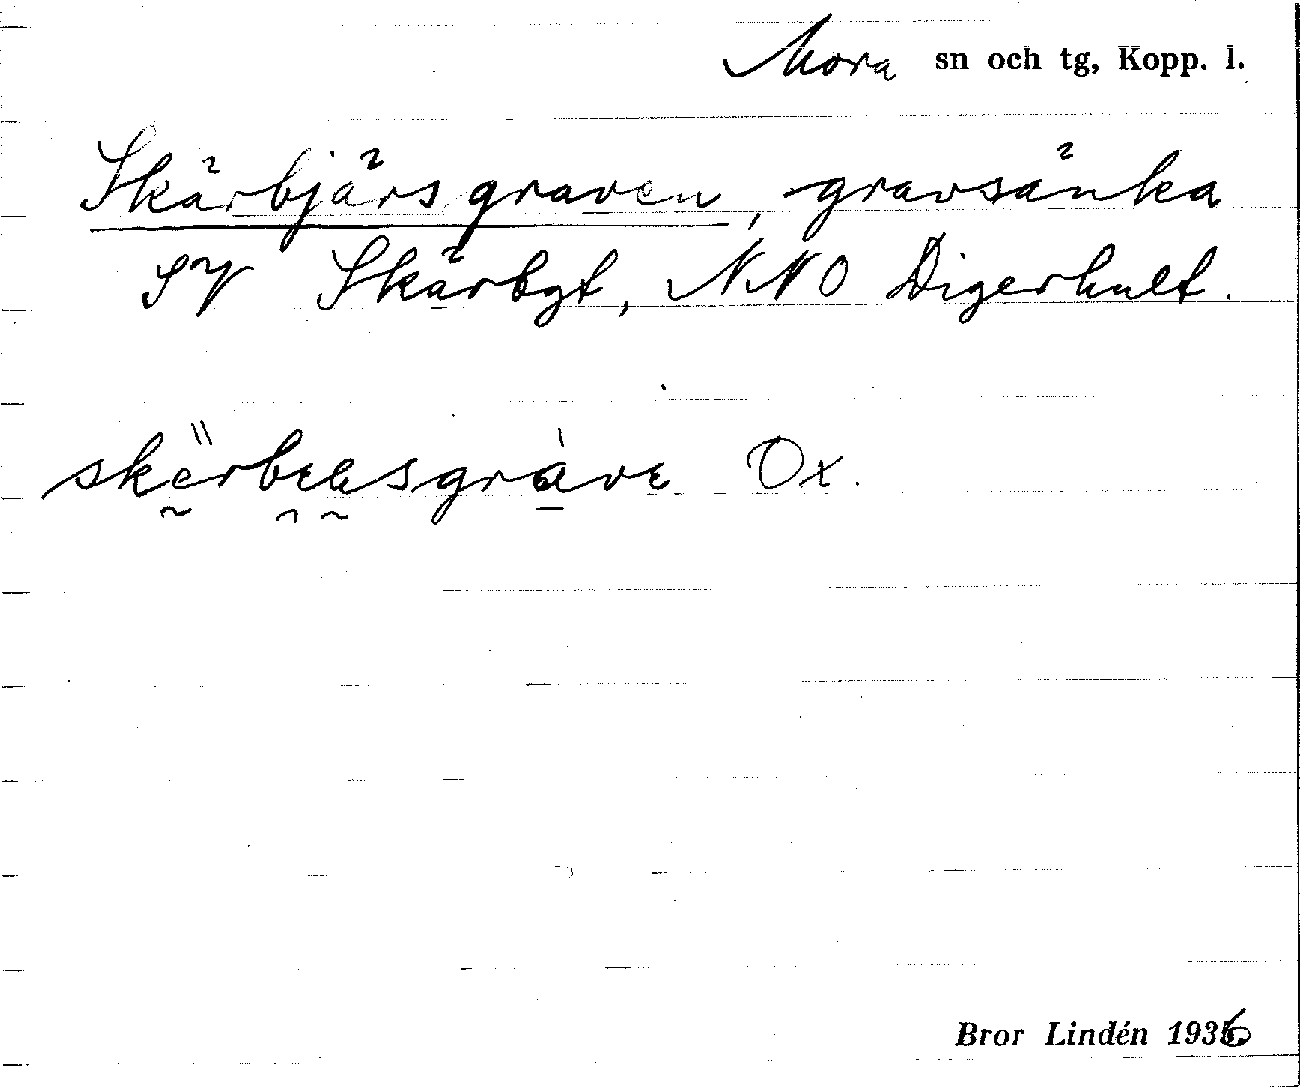 Mora sn och tg, Kopp. l.
Skärbjärsgraven, gravsänka
SV Skärbgt, NNO Digerhult.
Ox.
Bror Lindén 1936